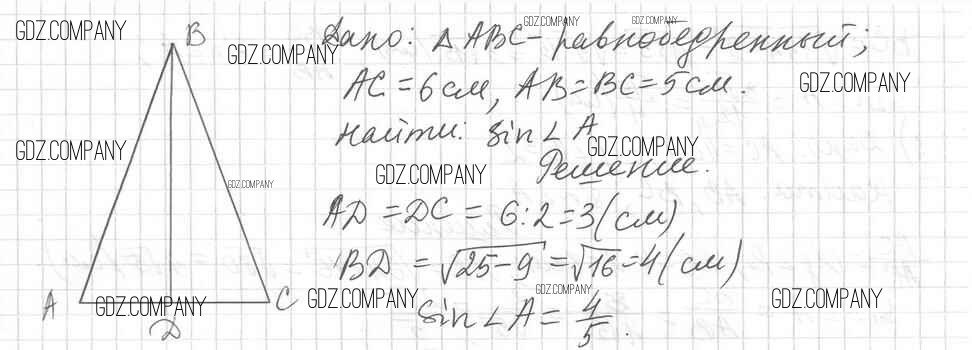 GDZ.COMPANY
GDZ.COMPANY
GDZ.COMPANY
B
Дано: △ ABC - равнобедренный;
GDZ.COMPANY
GDZ.COMPANY
AC = 6 см, AB = BC = 5 см.
Найти: sin∠A
GDZ.COMPANY
GDZ.COMPANY
Решение.
GDZ.COMPANY
GDZ.COMPANY
AD = DC = 6:2 = 3 (см)
BD = √25-9 = √16 = 4 (см)
GDZ.COMPANY
A
C
GDZ.COMPANY
GDZ.COMPANY
GDZ.COMPANY
D
sin∠A = 4/5.